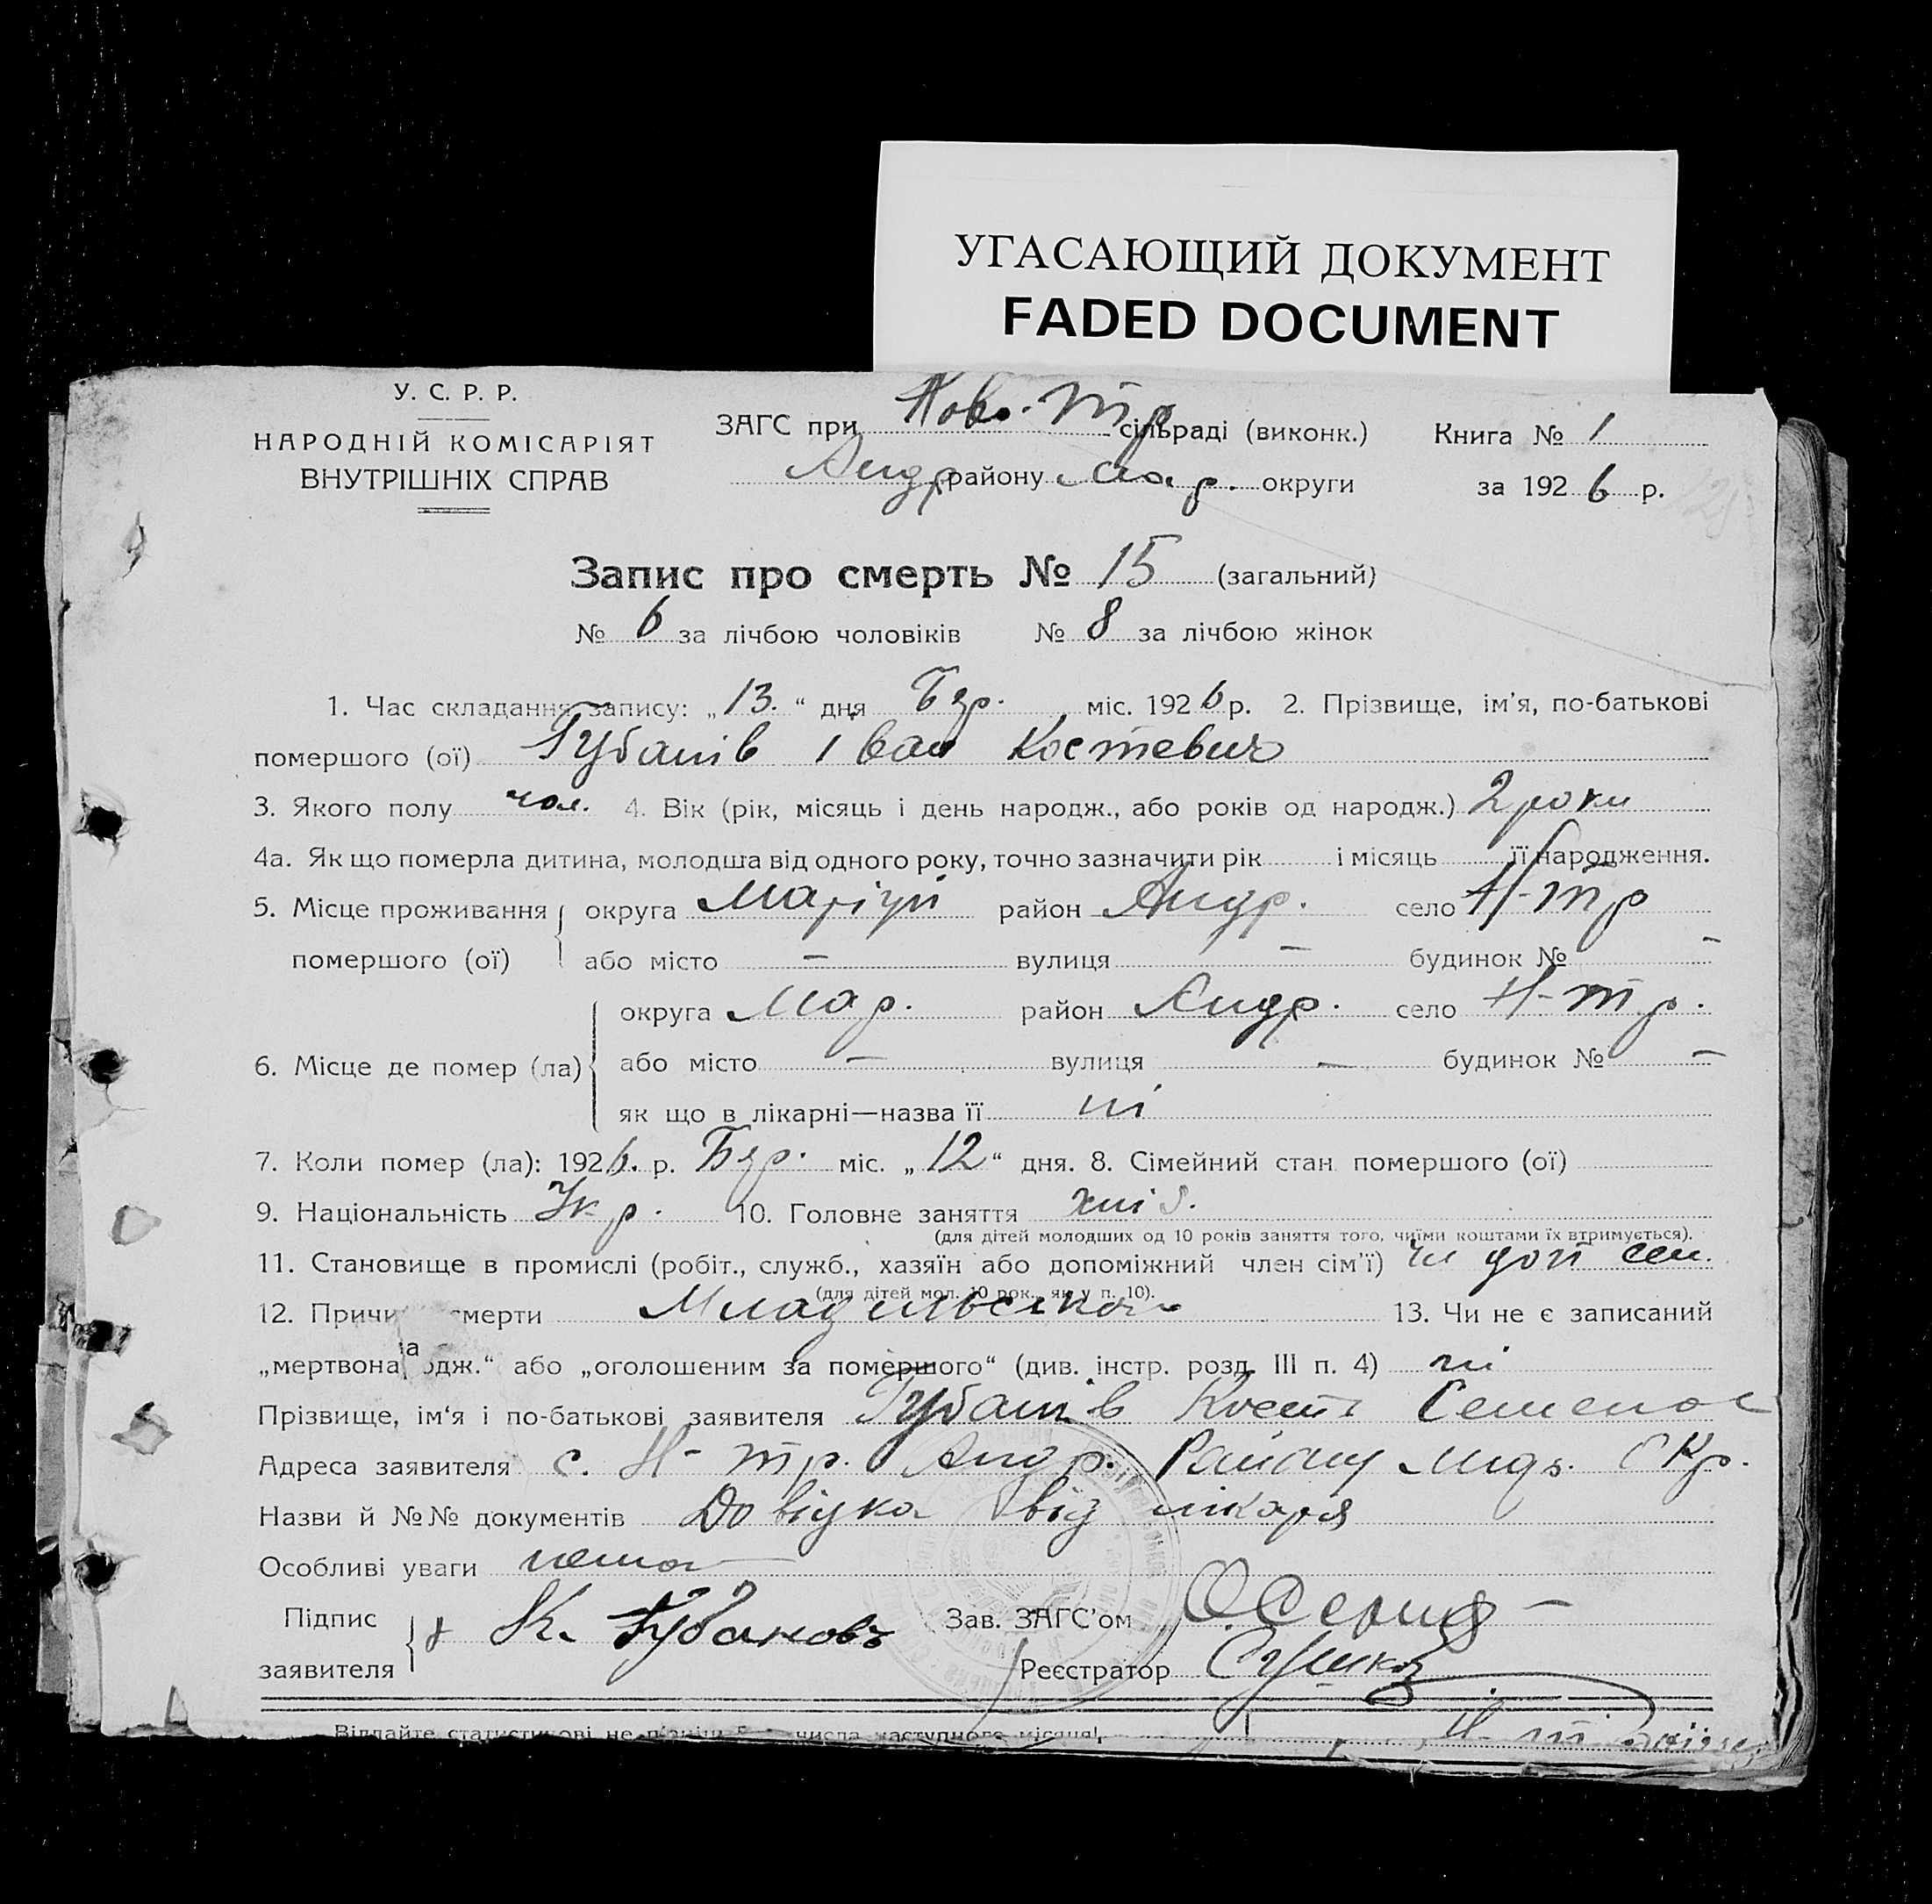 УГАСАЮЩИЙ ДОКУМЕНТ
FADED DOCUMENT
У. С. Р. Р.
НАРОДНІЙ КОМІСАРІЯТ
ВНУТРІШНІХ СПРАВ
ЗАГС при Ново-Тр сільраді (виконк.) Книга № 1
Андр району Мар. округи за 1926 р.
Запис про смерть № 15 (загальний)
№ 6 за лічбою чоловіків № 8 за лічбою жінок
1. Час складання запису: „13.“ дня Бзр. міс. 1926 р. 2. Прізвище, ім'я, по-батькові
помершого (ої) Губанів Іван Костевич
3. Якого полу чол. 4. Вік (рік, місяць і день народж., або років од народж.) 2 роки
4а. Як що померла дитина, молодша від одного року, точно зазначити рік і місяць її народження.
5. Місце проживання округа Маріуп район Андр. село Н-Тр
помершого (ої) або місто — вулиця — будинок № —
округа Мар. район Андр. село Н-Тр.
6. Місце де помер (ла) або місто — вулиця — будинок № —
як що в лікарні—назва її ні
7. Коли помер (ла): 1926. р. Бзр. міс. „12“ дня. 8. Сімейний стан помершого (ої)
9. Національність Укр. 10. Головне заняття хліб.
(для дітей молодших од 10 років заняття того, чиїми коштами їх втримується).
11. Становище в промислі (робіт., служб., хазяїн або допоміжний член сім'ї) чл доп сем.
(для дітей мол. 10 рок., як у п. 10).
12. Причи смерти 13. Чи не є записаний
„мертвона одж.“ або „оголошеним за помершого“ (див. інстр. розд. III п. 4) ні
Прізвище, ім'я і по-батькові заявителя Губанів Кость Семенов
Адреса заявителя с. Н-Тр. Андр. Району Окр.
Назви й №№ документів Довідка від лікаря
Особливі уваги нема
Підпис
заявителя К. Губановъ
Зав. ЗАГС'ом
Реєстратор
Віддайте статистикові не пізніш 5 числа наступного місяця!